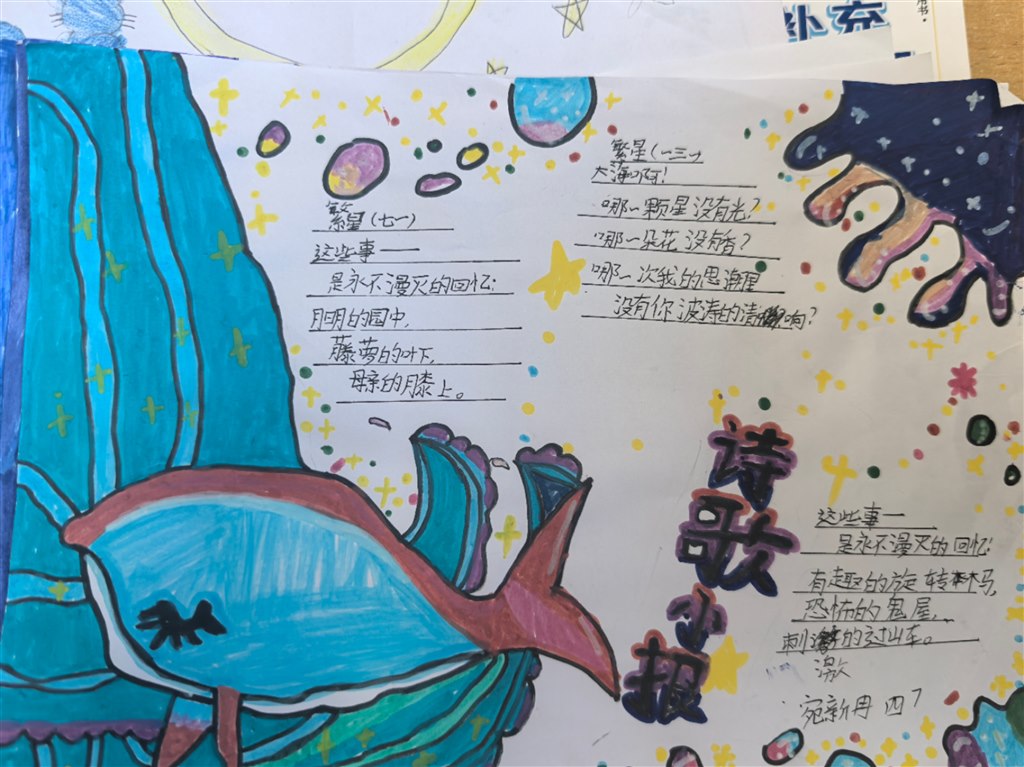 补充
繁星（七一）
这些事——
是永不漫灭的回忆；
月明的园中，
藤萝的叶下，
母亲的膝上。
繁星（一三一）
大海啊！
哪一颗星没有光？
哪一朵花没有香？
哪一次我的思潮里
没有你波涛的清响？
诗歌小报
这些事一
是永不漫灭的回忆；
有趣的旋转木马，
恐怖的鬼屋，
刺激的过山车。
宛新冉 四7